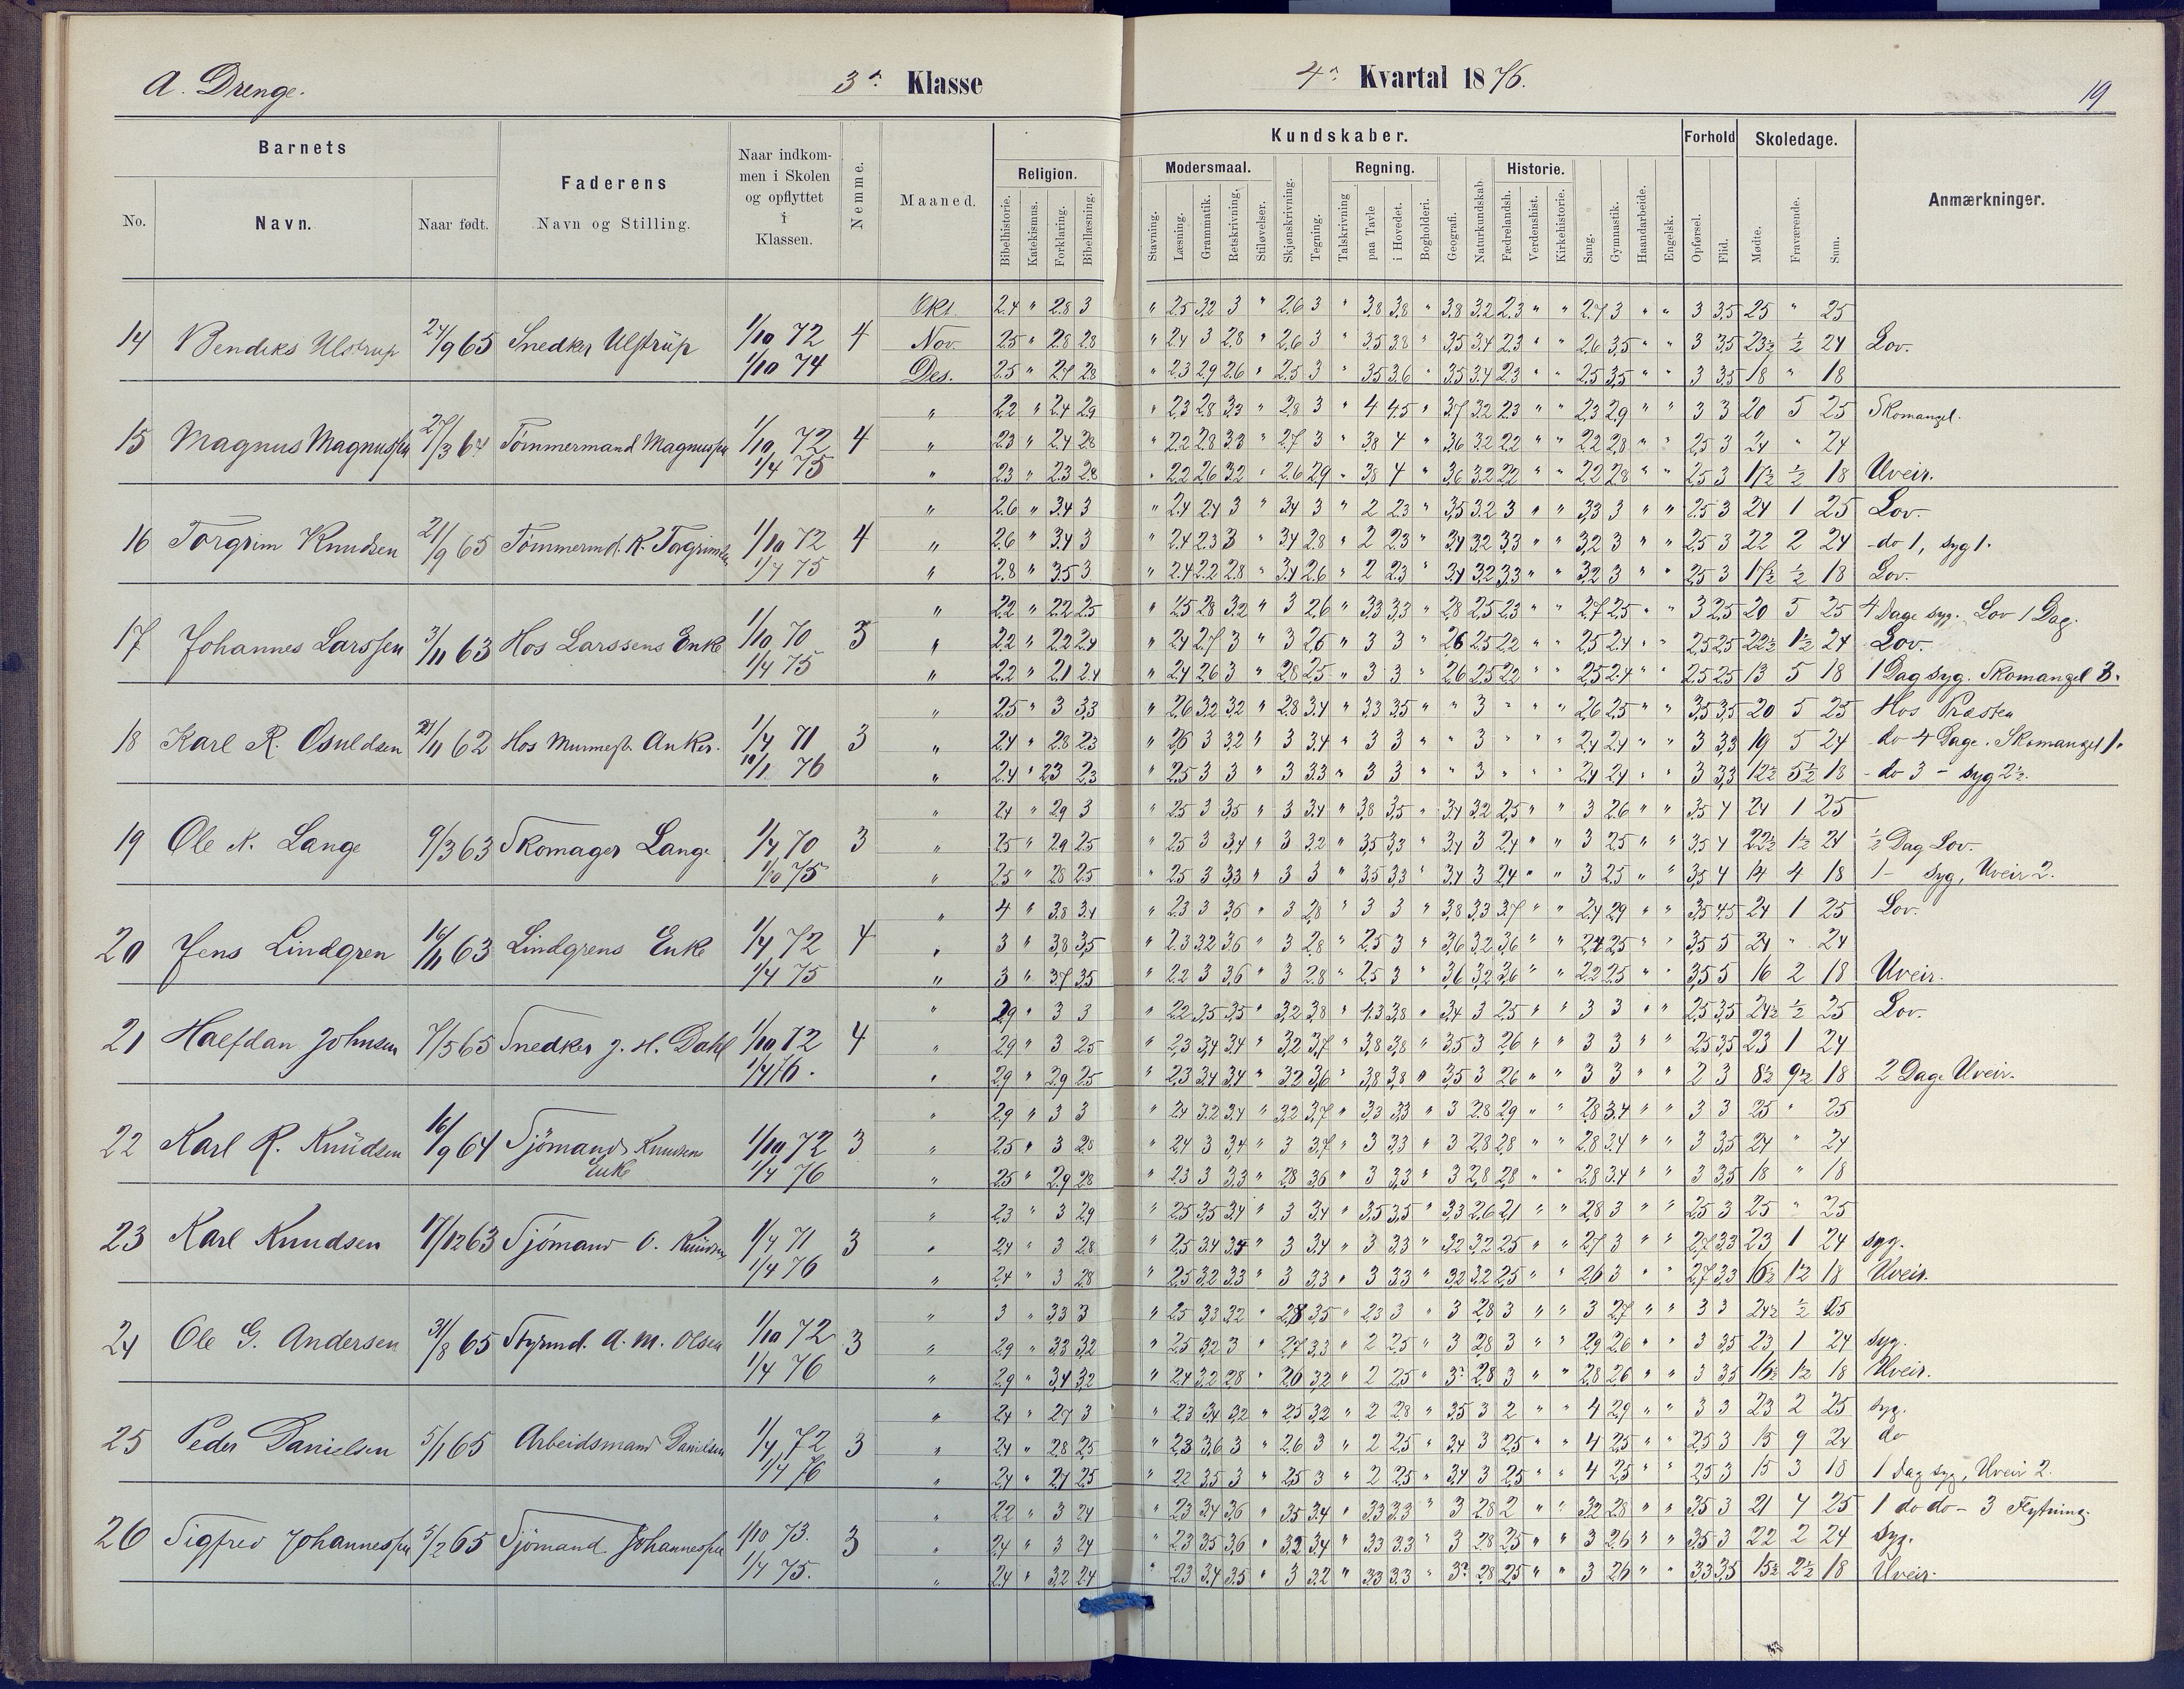 A. Drenge.
3die Klasse
4de Kvartal 1876.
19
Barnets
Faderens
Naar indkommen i Skolen og opflyttet i Klassen.
Nemme.
Maaned.
Religion.
Kundskaber.
Modersmaal.
Regning.
Historie.
Forhold
Skoledage.
Anmærkninger.
No.
Navn.
Naar født.
Navn og Stilling.
Bibelhistorie.
Katekismus.
Forklaring.
Bibellæsning.
Stavning.
Læsning.
Grammatik.
Retskrivning.
Stiløvelser.
Skjønskrivning.
Tegning.
Talskrivning
paa Tavle
i Hovedet.
Bogholderi.
Geografi.
Naturkundskab
Fædrelandsh.
Verdenshist.
Kirkehistorie.
Sang.
Gymnastik.
Haandarbeide.
Engelsk.
Opførsel.
Flid.
Mødte.
Fraværende.
Sum.
Okt. 2.4 " 2.8 3 " 2.5 3.2 3 " 2.6 3 " 3.8 3.8 " 3.8 3.2 2.3 " " 2.7 3 " " 3 3.5 25 " 25
14 Bendiks Ulstrup 27/9 65 Snedker Ulstrup 1/10 72 4 Nov. 2.5 " 2.8 2.8 " 2.4 3 2.8 " 2.6 3 " 3.5 3.8 " 3.5 3.4 2.3 " " 2.6 3.5 " " 3 3.5 23½ ½ 24 Lov.
1/10 74 Des. 2.5 " 2.7 2.8 " 2.3 2.9 2.6 " 2.5 3 " 3.5 3.6 " 3.5 3.4 2.3 " " 2.5 3.5 " " 3 3.5 18 " 18
" 2.2 " 2.4 2.9 " 2.3 2.8 3.3 " 2.8 3 " 4 4.5 " 3.7 3.2 2.3 " " 2.3 2.9 " " 3 3 20 5 25 Skomangel.
15 Magnus Magnussen 27/3 64 Tömmermand Magnussen 1/10 72 4 " 2.3 " 2.4 2.8 " 2.2 2.8 3.3 " 2.7 3 " 3.8 4 " 3.6 3.2 2.2 " " 2.2 2.8 " " 2.5 3 24 " 24
1/4 75 " 2.3 " 2.3 2.8 " 2.2 2.6 3.2 " 2.6 2.9 " 3.8 4 " 3.6 3.2 2.2 " " 2.2 2.8 " " 2.5 3 17½ ½ 18 Uveir.
" 2.6 " 3.4 3 " 2.4 2.4 3 " 3.4 3 " 2 2.3 " 3.5 3.2 3 " " 3.3 3 " " 2.5 3 24 1 25 Lov.
16 Torgrim Knudsen 21/9 65 Tömmermd. K. Torgrimsen 1/10 72 4 " 2.6 " 3.4 3 " 2.4 2.3 3 " 3.4 2.8 " 2 2.3 " 3.4 3.2 3.3 " " 3.2 3 " " 2.5 3 22 2 24 - do 1, syg 1.
1/4 75 " 2.8 " 3.5 3 " 2.4 2.2 2.8 " 3.4 2.6 " 2 2.3 " 3.4 3.2 3.3 " " 3.2 3 " " 2.5 3 17½ ½ 18 Lov.
" 2.2 " 2.2 2.5 " 2.5 2.8 3.2 " 3 2.6 " 3.3 3.3 " 2.8 2.5 2.3 " " 2.7 2.5 " " 3 2.5 20 5 25 4 Dage syg. Lov 1 Dag.
17 Johannes Larssen 3/11 63 Hos Larssens Enke 1/10 70 3 " 2.2 " 2.2 2.4 " 2.4 2.7 3 " 3 2.6 " 3 3 " 2.6 2.5 2.2 " " 2.5 2.4 " " 2.5 2.5 22½ 1½ 24 Lov.
1/4 75 " 2.2 " 2.1 2.4 " 2.4 2.6 3 " 2.8 2.5 " 3 3 " 2.6 2.5 2.2 " " 2.5 2.4 " " 2.5 2.5 13 5 18 1 Dag syg. Skomangel 3.
" 2.5 " 3 3.3 " 2.6 3.2 3.2 " 2.8 3.4 " 3.3 3.5 " " 3 " " " 2.6 2.5 " " 3.5 3.5 20 5 25 Hos Præsten
18 Karl R. Osuldsen 21/11 62 Hos Murmestr. Anker. 1/4 71 3 " 2.4 " 2.8 2.3 " 2.6 3 3.2 " 3 3.4 " 3 3 " " 3 " " " 2.4 2.4 " " 3 3.3 19 5 24 - do 4 Dage. Skomangel 1.
10/1 76 " 2.4 " 2.3 2.3 " 2.5 3 3 " 3 3.3 " 3 3 " " 3 " " " 2.4 2.4 " " 3 3.3 12½ 5½ 18 - do 3 - syg 2½.
" 2.4 " 2.9 3 " 2.5 3 3.5 " 3 3.4 " 3.8 3.5 " 3.4 3.2 2.5 " " 3 2.6 " " 3.5 4 24 1 25
19 Ole N. Lange 9/3 63 Skomager Lange 1/4 70 3 " 2.5 " 2.9 2.5 " 2.5 3 3.4 " 3 3.2 " 3.5 3.3 " 3.4 3 2.4 " " 3 2.5 " " 3.5 4 22½ 1½ 24 ½ Dag Lov.
1/10 75 " 2.5 " 2.8 2.5 " 2.5 3 3.3 " 3 3 " 3.5 3.3 " 3.4 3 2.4 " " 3 2.5 " " 3.5 4 14 4 18 1 - syg, Uveir 2.
" 4 " 3.8 3.4 " 2.3 3 3.6 " 3 2.8 " 3 3 " 3.8 3.3 3.7 " " 2.4 2.9 " " 3.5 4.5 24 1 25 Lov.
20 Jens Lindgren 16/11 63 Lindgrens Enke 1/4 72 4 " 3 " 3.8 3.5 " 2.3 3.2 3.6 " 3 2.8 " 2.5 3 " 3.6 3.2 3.6 " " 2.4 2.5 " " 3.5 5 24 " 24
1/4 75 " 3 " 3.7 3.5 " 2.2 3 3.6 " 3 2.8 " 2.5 3 " 3.6 3.2 3.6 " " 2.2 2.5 " " 3.5 5 16 2 18 Uveir.
" 2.9 " 3 3 " 2.2 3.5 3.5 " 3.2 3.8 " 4.3 3.8 " 3.4 3 2.5 " " 3 3 " " 2.5 3.5 24½ ½ 25 Lov.
21 Halfdan Johnsen 7/5 65 Snedker J. H. Dahl 1/10 72 4 " 2.9 " 3 2.5 " 2.3 3.4 3.4 " 3.2 3.7 " 3.8 3.8 " 3.5 3 2.6 " " 3 3 " " 2.5 3.5 23 1 24
1/4 76. " 2.9 " 2.9 2.5 " 2.3 3.4 3.4 " 3.2 3.6 " 3.8 3.8 " 3.5 3 2.6 " " 3 3 " " 2 3 8½ 9½ 18 2 Dage Uveir.
" 2.9 " 3 3 " 2.4 3.2 3.4 " 3.2 3.7 " 3.3 3.3 " 3 2.8 2.9 " " 2.8 3.4 " " 3 3 25 " 25
22 Karl R. Knudsen 16/9 64 Sjömand Knudsens 1/10 72 3 " 2.5 " 3 2.8 " 2.4 3 3.4 " 3 3.7 " 3 3.3 " 3 2.8 2.8 " " 2.8 3.4 " " 3 3.5 24 " 24
Enke 1/4 76 " 2.5 " 2.9 2.8 " 2.3 3 3.3 " 2.8 3.6 " 3 3.3 " 3 2.8 2.8 " " 2.8 3.4 " " 3 3.5 18 " 18
" 2.3 " 3 2.9 " 2.5 3.5 3.4 " 3 3.4 " 3.5 3.5 " 3.3 2.6 2.1 " " 2.8 3 " " 2.5 3 25 " 25
23 Karl Knudsen 17/12 63 Sjömand O. Knudsen 1/4 71 3 " 2.4 " 3 2.8 " 2.5 3.4 3.4 " 3 3.4 " 3 3.3 " 3.2 3.2 2.5 " " 2.7 3 " " 2.7 3.3 23 1 24 syg.
1/4 76 " 2.4 " 3 2.8 " 2.5 3.2 3.3 " 3 3.3 " 3 3.3 " 3.2 3.2 2.5 " " 2.6 3 " " 2.7 3.3 16½ 1½ 18 Uveir.
" 3 " 3.3 3 " 2.5 3.3 3.2 " 2.8 3.5 " 2.3 3 " 3 2.8 3 " " 3 2.7 " " 3 3 24½ ½ 25
24 Ole G. Andersen 31/8 65 Styrmd. A. M. Olsen 1/10 72 3 " 2.9 " 3.3 3.2 " 2.5 3.2 3 " 2.7 3.3 " 2 2.5 " 3 2.8 3 " " 2.9 2.6 " " 3 3.5 23 1 24 syg.
1/4 76 " 2.9 " 3.4 3.2 " 2.4 3.2 2.8 " 2.6 3.2 " 2 2.5 " 3 2.8 3 " " 2.8 2.6 " " 3 3.5 16½ 1½ 18 Uveir.
" 2.4 " 2.7 3 " 2.3 3.4 3.2 " 2.5 3.2 " 2 2.8 " 3.5 3 2 " " 4 2.9 " " 3 3 23 2 25 syg.
25 Peder Danielsen 5/1 65 Arbeidsmand Danielsen 1/4 72 3 " 2.4 " 2.8 2.5 " 2.3 3.6 3 " 2.6 3 " 2 2.5 " 3.4 3 2.5 " " 4 2.5 " " 2.5 3 15 9 24 do
1/4 76 " 2.4 " 2.7 2.5 " 2.2 3.5 3 " 2.5 3 " 2 2.5 " 3.4 3 2.5 " " 4 2.5 " " 2.5 3 15 3 18 1 dag syg, Uveir 2.
" 2.2 " 3 2.4 " 2.3 3.4 3.6 " 3.5 3.4 " 3.3 3.3 " 3 2.8 2 " " 3.2 2.8 " " 3.5 3 21 4 25 1 do do - 3 Flytning.
26 Sigfred Johannessen 5/2 65 Sjömand Johannessen 1/10 73. 3 " 2.4 " 3 2.4 " 2.3 3.5 3.6 " 3.2 3.4 " 3.3 3.3 " 3 2.8 2.5 " " 3 2.6 " " 3.5 3 22 2 24 syg.
1/4 75. " 2.4 " 3.2 2.4 " 2.3 3.4 3.5 " 3 3.2 " 3.3 3.3 " 3 2.8 2.5 " " 3 2.6 " " 3.3 3.5 15½ 2½ 18 Uveir.